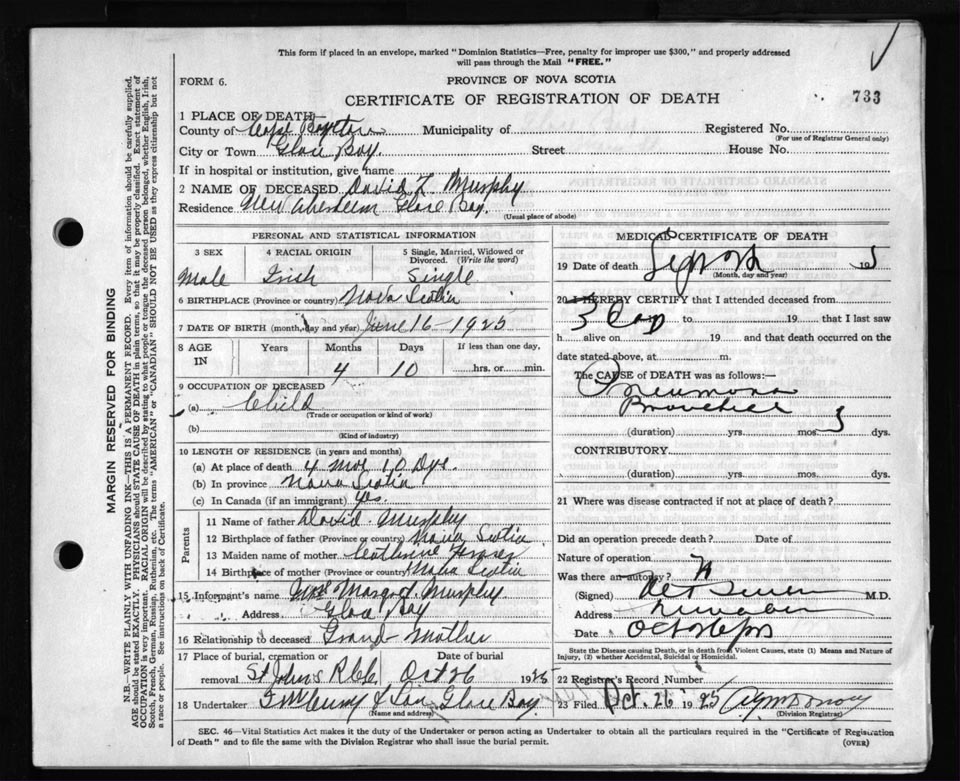 This form if placed in an envelope, marked "Dominion Statistics—Free, penalty for improper use $300," and properly addressed
will pass through the Mail "FREE."
FORM 6.
PROVINCE OF NOVA SCOTIA
733
CERTIFICATE OF REGISTRATION OF DEATH
1 PLACE OF DEATH—
County of Cape Breton Municipality of Registered No.
(For use of Registrar General only)
City or Town Glace Bay. Street House No.
If in hospital or institution, give name
2 NAME OF DECEASED David L Murphy
Residence New Aberdeen Glace Bay.
(Usual place of abode)
PERSONAL AND STATISTICAL INFORMATION
3 SEX 4 RACIAL ORIGIN 5 Single, Married, Widowed or
Divorced. (Write the word)
Male Irish Single
6 BIRTHPLACE (Province or country) Nova Scotia
7 DATE OF BIRTH (month, day and year) June 16-1925
8 AGE IN Years Months Days If less than one day,
4 10 hrs. or min.
9 OCCUPATION OF DECEASED
(a) Child
(Trade or occupation or kind of work)
(b)
(Kind of industry)
10 LENGTH OF RESIDENCE (in years and months)
(a) At place of death 4 Mos 10 Dys.
(b) In province Nova Scotia
(c) In Canada (if an immigrant) yes.
Parents
11 Name of father David Murphy
12 Birthplace of father (Province or country) Nova Scotia
13 Maiden name of mother Catherine Fraser
14 Birthplace of mother (Province or country) Nova Scotia
15 Informant's name Mrs Margret Murphy
Address Glace Bay
16 Relationship to deceased Grand Mother
17 Place of burial, cremation or Date of burial
removal St Johns Oct 26 1925
18 Undertaker & Son Glace Bay
(Name and address)
MEDICAL CERTIFICATE OF DEATH
19 Date of death 192
(Month, day and year)
20 I HEREBY CERTIFY that I attended deceased from
to 19 that I last saw
h alive on 19 and that death occurred on the
date stated above, at m.
The CAUSE of DEATH was as follows:—
Pneumonia
(duration) yrs. mos. 3 dys.
CONTRIBUTORY
(duration) yrs. mos. dys.
21 Where was disease contracted if not at place of death?
Did an operation precede death? Date of
Nature of operation
Was there an autopsy?
(Signed) M.D.
Address
Date
State the Disease causing Death, or in death from Violent Causes, state (1) Means and Nature of
Injury, (2) whether Accidental, Suicidal or Homicidal.
22 Registrar's Record Number
23 Filed Oct. 26 1925
(Division Registrar)
SEC. 46—Vital Statistics Act makes it the duty of the Undertaker or person acting as Undertaker to obtain all the particulars required in the "Certificate of Registration
of Death" and to file the same with the Division Registrar who shall issue the burial permit.
(OVER)
MARGIN RESERVED FOR BINDING
N.B.—WRITE PLAINLY WITH UNFADING INK—THIS IS A PERMANENT RECORD. Every item of information should be carefully supplied.
AGE should be stated EXACTLY. PHYSICIANS should STATE CAUSE OF DEATH in plain terms, so that it may be properly classified. Exact statement of
OCCUPATION is very important. RACIAL ORIGIN will be described by stating to what people or tongue the deceased person belonged, whether English, Irish,
Scotch, French, German, Russian, Ruthenian, etc. The terms "AMERICAN" or "CANADIAN" SHOULD NOT BE USED as they express citizenship but not
a race or people. See instructions on back of Certificate.